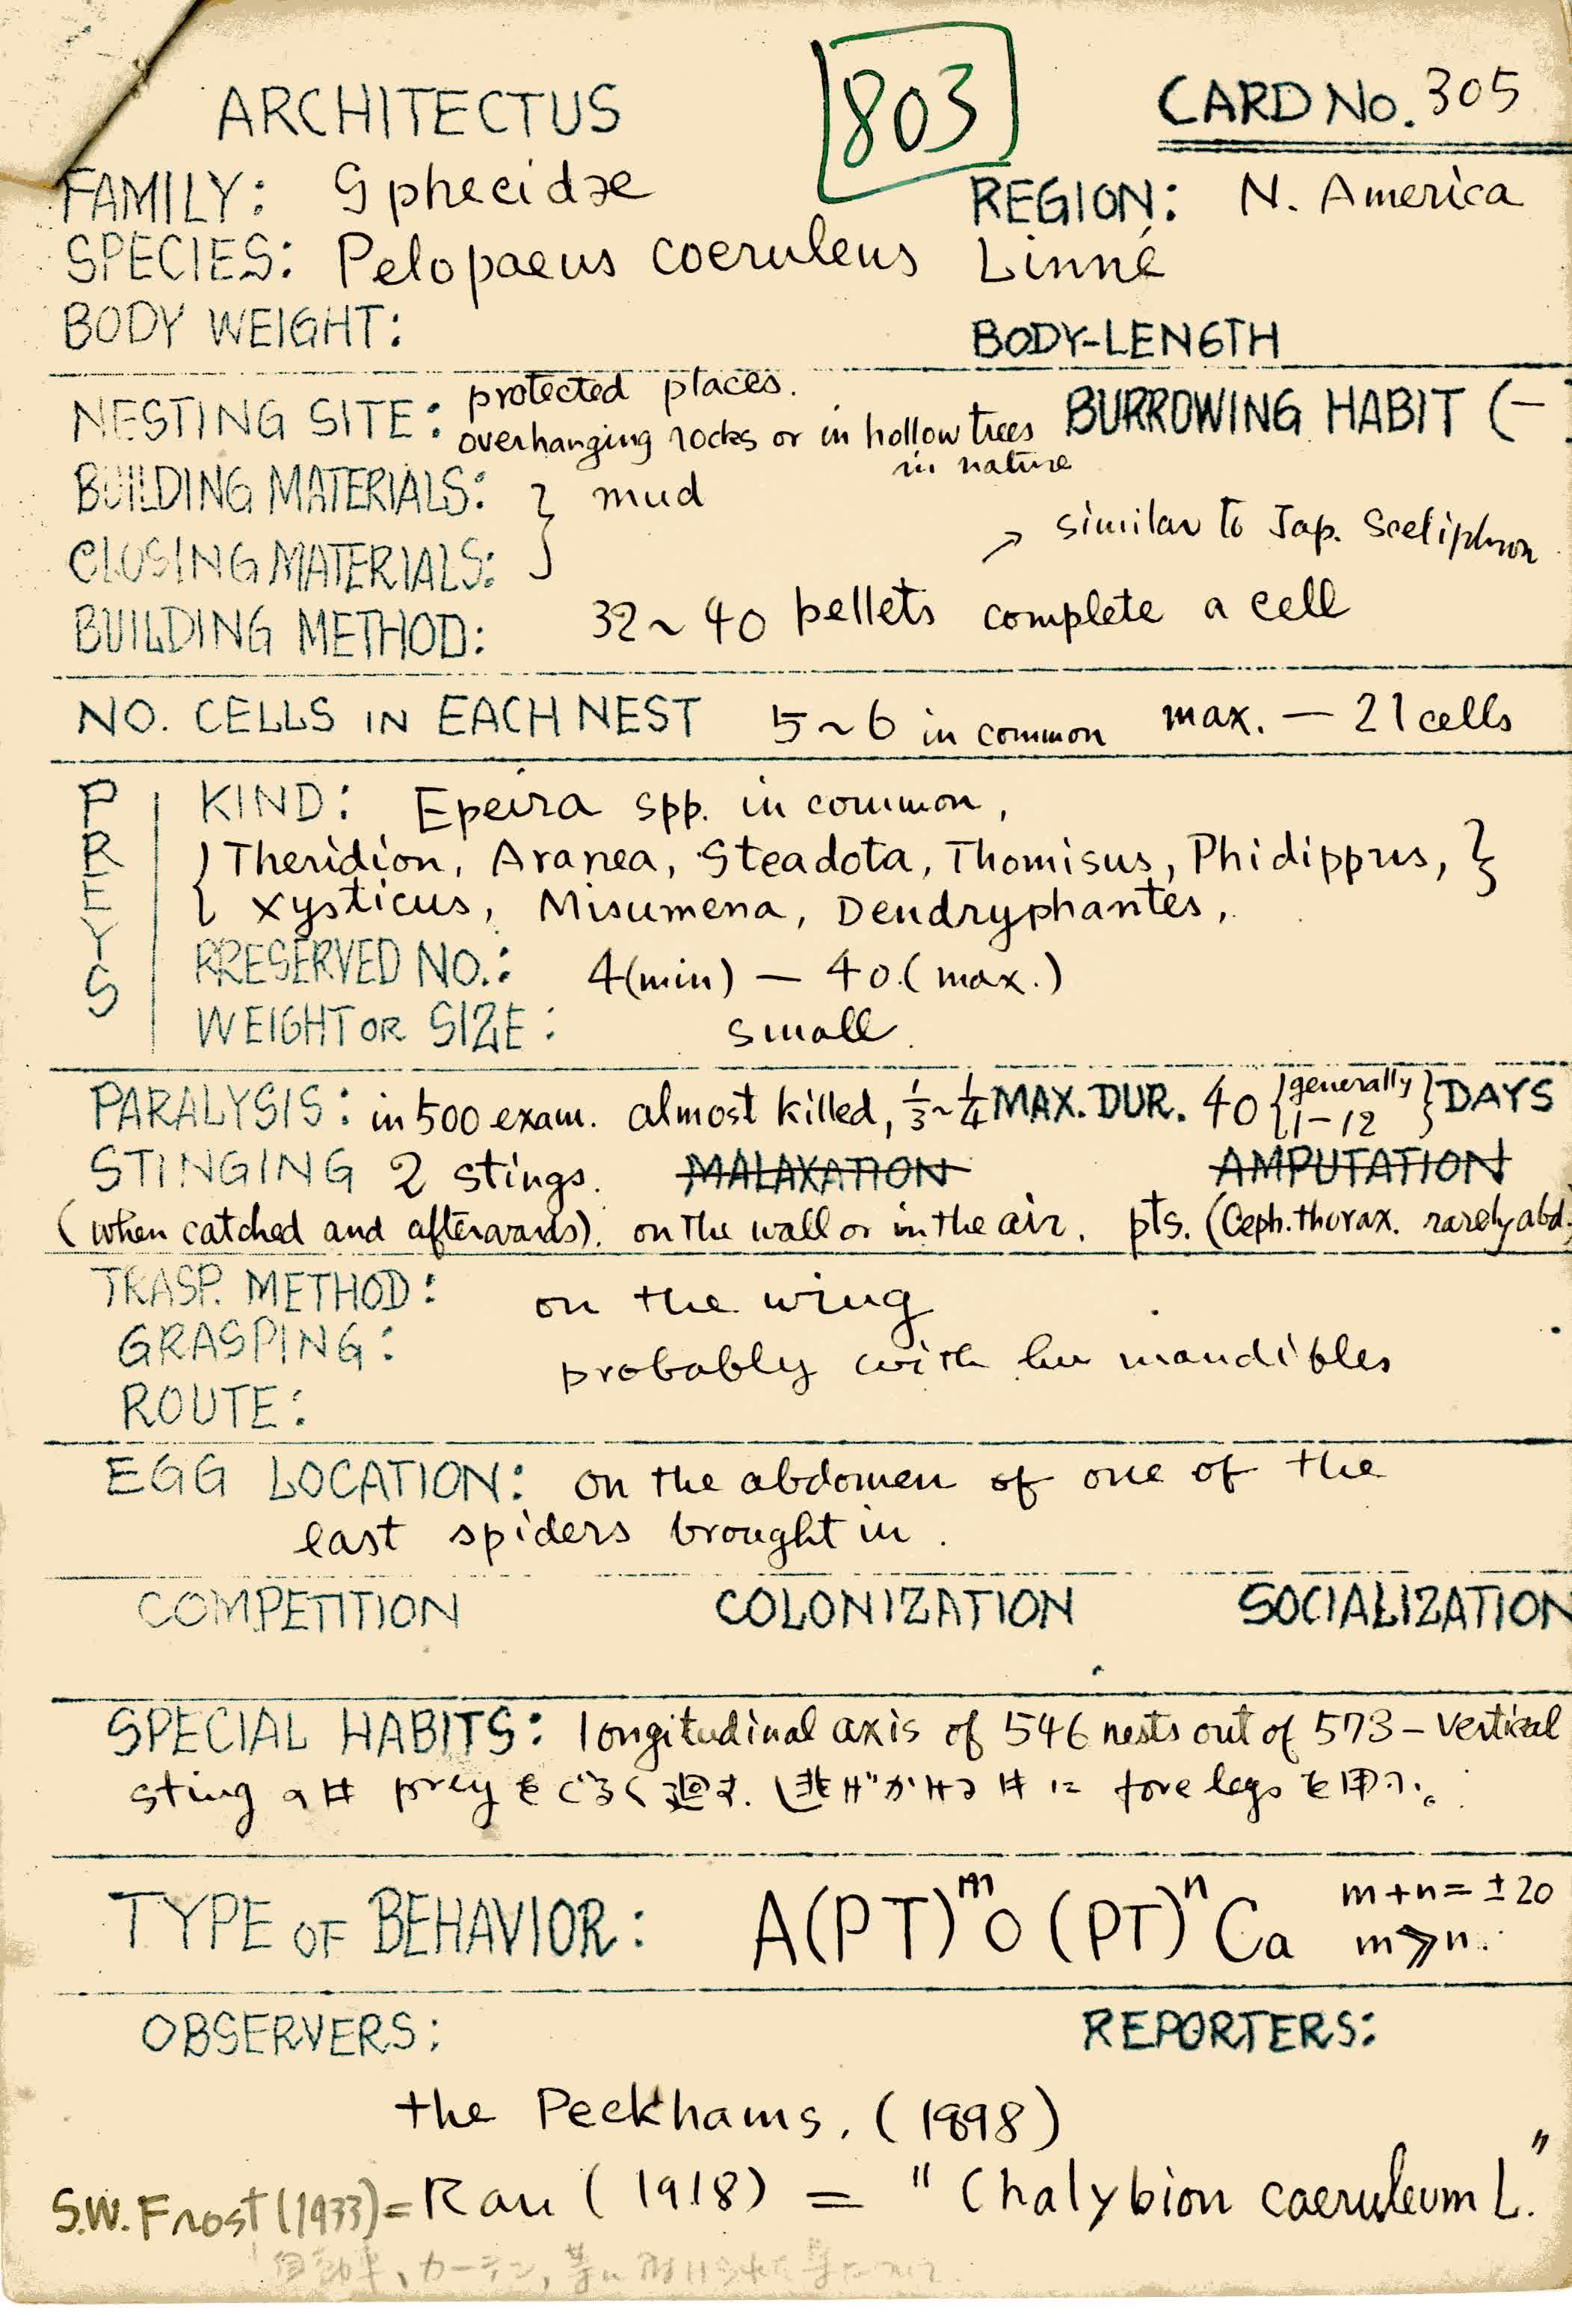 803
ARCHITECTUS
CARD No. 305
FAMILY: Sphecidae
REGION: N. America
SPECIES: Pelopaeus coeruleus Linné
BODY WEIGHT:
BODY-LENGTH
NESTING SITE: protected places.
overhanging rocks or in hollow trees
in nature
BURROWING HABIT (–)
BUILDING MATERIALS: } mud
CLOSING MATERIALS:
↗ similar to Jap. Sceliphron
BUILDING METHOD: 32~40 pellets complete a cell
NO. CELLS IN EACH NEST 5~6 in common max. — 21 cells
PREYS
KIND: Epeira spp. in common,
{ Theridion, Aranea, Steadota, Thomisus, Phidippus, }
Xysticus, Misumena, Dendryphantes,
PRESERVED NO.: 4(min) — 40.(max.)
WEIGHT OR SIZE: small.
PARALYSIS: in 500 exam. almost killed, 1/3~1/4 MAX. DUR. 40 {generally 1–12} DAYS
STINGING 2 stings. MALAXATION AMPUTATION
(when catched and afterwards). on the wall or in the air. pts. (Ceph.thorax. rarely abd.
TRASP. METHOD: on the wing
GRASPING: probably with her mandibles
ROUTE:
EGG LOCATION: on the abdomen of one of the
last spiders brought in.
COMPETITION COLONIZATION SOCIALIZATION
SPECIAL HABITS: longitudinal axis of 546 nests out of 573 – vertical
sting の時 prey をぐるぐる廻す. fore legs を用う。
TYPE OF BEHAVIOR: A(PT)ᵐO(PT)ⁿCa m+n=±20
m≫n.
OBSERVERS: REPORTERS:
the Peckhams. (1898)
S.W. Frost (1933)= Rau (1918) = "Chalybion caeruleum L."
自動車、カーテン,